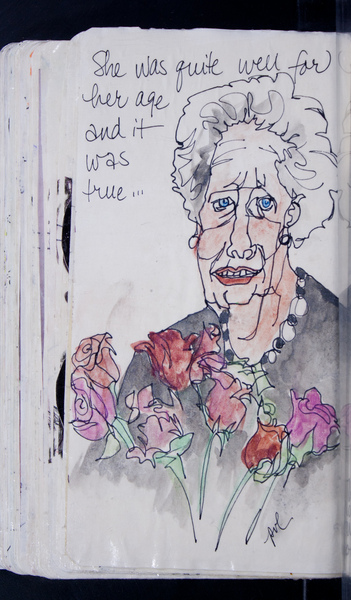 She was quite well for
her age
and it
was
true...